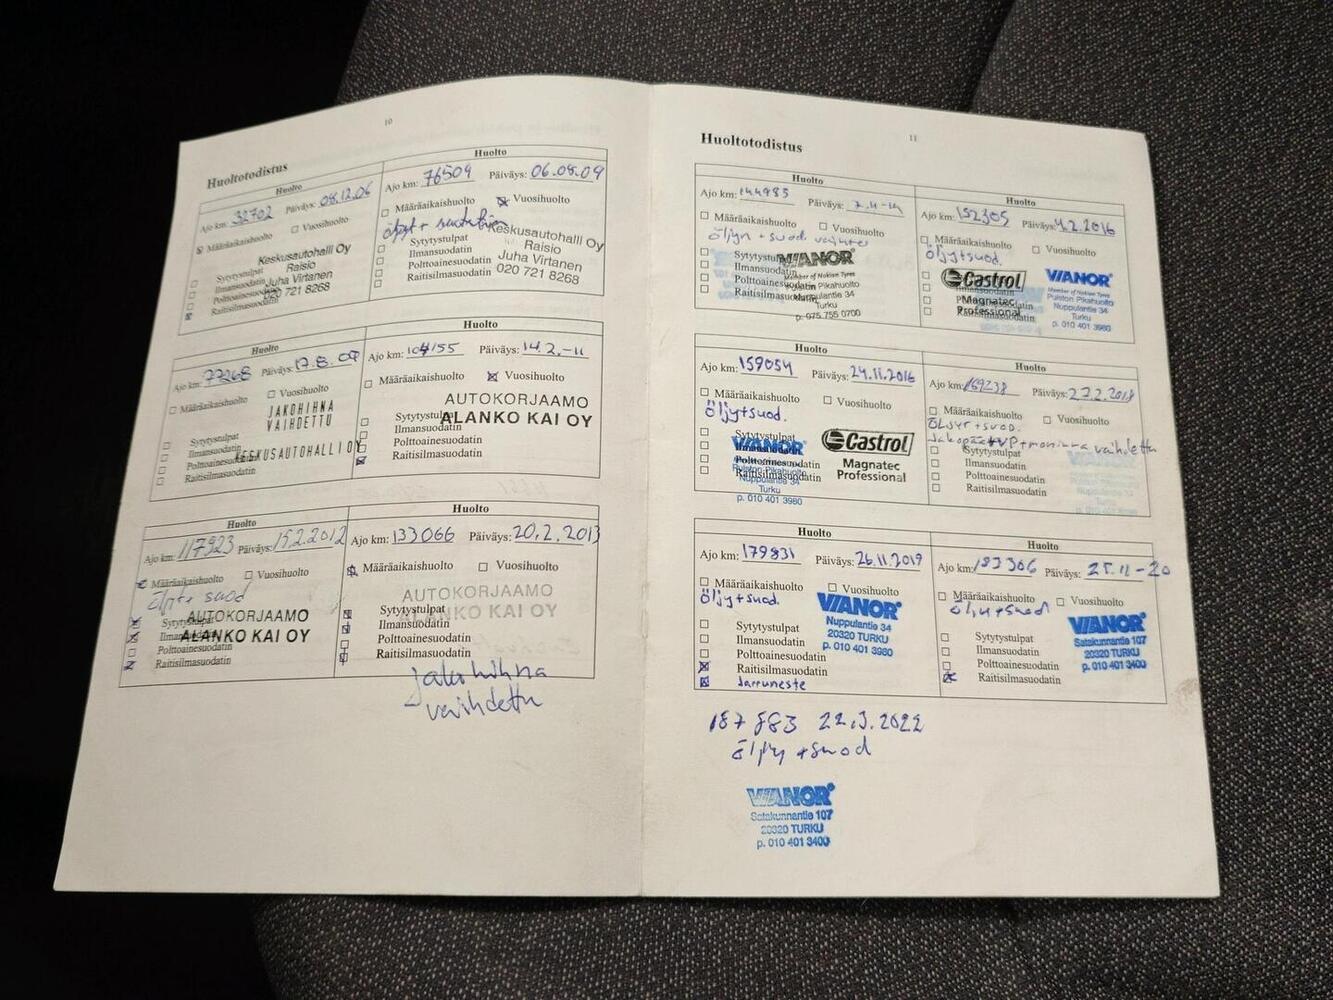 10
Huoltotodistus
Huolto
Ajo km: 32702 Päiväys: 08.12.06
Määräaikaishuolto
Vuosihuolto
Keskusautohalli Oy
Raisio
Juha Virtanen
020 721 8268
Sytytystulpat
Ilmansuodatin
Polttoainesuodatin
Raitisilmasuodatin
Huolto
Ajo km: 76509 Päiväys: 06.08.09
Määräaikaishuolto
Vuosihuolto
Keskusautohalli Oy
Raisio
Juha Virtanen
020 721 8268
Sytytystulpat
Ilmansuodatin
Polttoainesuodatin
Raitisilmasuodatin
Huolto
Ajo km: 77268 Päiväys: 17.8.09
Määräaikaishuolto
Vuosihuolto
JAKOHIHNA
VAIHDETTU
KESKUSAUTOHALLI OY
Sytytystulpat
Ilmansuodatin
Polttoainesuodatin
Raitisilmasuodatin
Huolto
Ajo km: 104155 Päiväys: 14.2.-11
Määräaikaishuolto
Vuosihuolto
AUTOKORJAAMO
ALANKO KAI OY
Sytytystulpat
Ilmansuodatin
Polttoainesuodatin
Raitisilmasuodatin
Huolto
Ajo km: 117923 Päiväys: 15.2.2012
Määräaikaishuolto
Vuosihuolto
suod
AUTOKORJAAMO
ALANKO KAI OY
Sytytystulpat
Ilmansuodatin
Polttoainesuodatin
Raitisilmasuodatin
Huolto
Ajo km: 133066 Päiväys: 20.2.2013
Määräaikaishuolto
Vuosihuolto
AUTOKORJAAMO
ALANKO KAI OY
Sytytystulpat
Ilmansuodatin
Polttoainesuodatin
Raitisilmasuodatin
jakohihna
vaihdettu
11
Huoltotodistus
Huolto
Ajo km: 144985 Päiväys:
Määräaikaishuolto
Vuosihuolto
öljyn + suod.
VIANOR
Member of Nokian Tyres
Puiston Pikahuolto
Nuppulantie 34
Turku
p. 075 755 0700
Sytytystulpat
Ilmansuodatin
Polttoainesuodatin
Raitisilmasuodatin
Huolto
Ajo km: 152305 Päiväys: 4.2.2016
Määräaikaishuolto
Vuosihuolto
öljy+suod.
Castrol
Magnatec
Professional
VIANOR
Member of Nokian Tyres
Puiston Pikahuolto
Nuppulantie 34
Turku
p. 010 401 3980
Huolto
Ajo km: 159054 Päiväys: 24.11.2016
Määräaikaishuolto
Vuosihuolto
öljy+suod.
Sytytystulpat
Ilmansuodatin
Polttoainesuodatin
Raitisilmasuodatin
VIANOR
Puiston Pikahuolto
Nuppulantie 34
Turku
p. 010 401 3980
Castrol
Magnatec
Professional
Huolto
Ajo km: 169238 Päiväys: 27.2.2018
Määräaikaishuolto
Vuosihuolto
öljyt+suod.
vaihdettu
Sytytystulpat
Ilmansuodatin
Polttoainesuodatin
Raitisilmasuodatin
Huolto
Ajo km: 179831 Päiväys: 26.11.2019
Määräaikaishuolto
Vuosihuolto
öljy+suod.
VIANOR
Nuppulantie 34
20320 TURKU
p. 010 401 3980
Sytytystulpat
Ilmansuodatin
Polttoainesuodatin
Raitisilmasuodatin
Jarruneste
Huolto
Ajo km: 183306 Päiväys: 25.11-20
Määräaikaishuolto
Vuosihuolto
öljy+suod
VIANOR
Satakunnantie 107
20320 TURKU
p. 010 401 3400
Sytytystulpat
Ilmansuodatin
Polttoainesuodatin
Raitisilmasuodatin
187 883 22.3.2022
öljy +suod
VIANOR
Satakunnantie 107
20320 TURKU
p. 010 401 3400